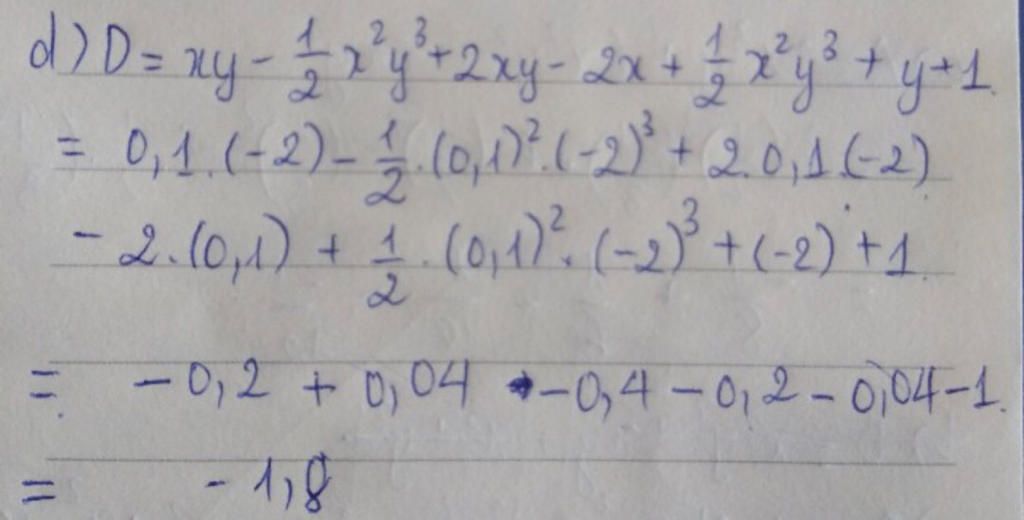 d) D = xy - 1/2 x²y³ + 2xy - 2x + 1/2 x²y³ + y + 1.
= 0,1.(-2) - 1/2.(0,1)².(-2)³ + 2.0,1.(-2)
- 2.(0,1) + 1/2.(0,1)².(-2)³ + (-2) + 1.
= -0,2 + 0,04 -0,4 - 0,2 - 0,04 - 1.
= -1,8